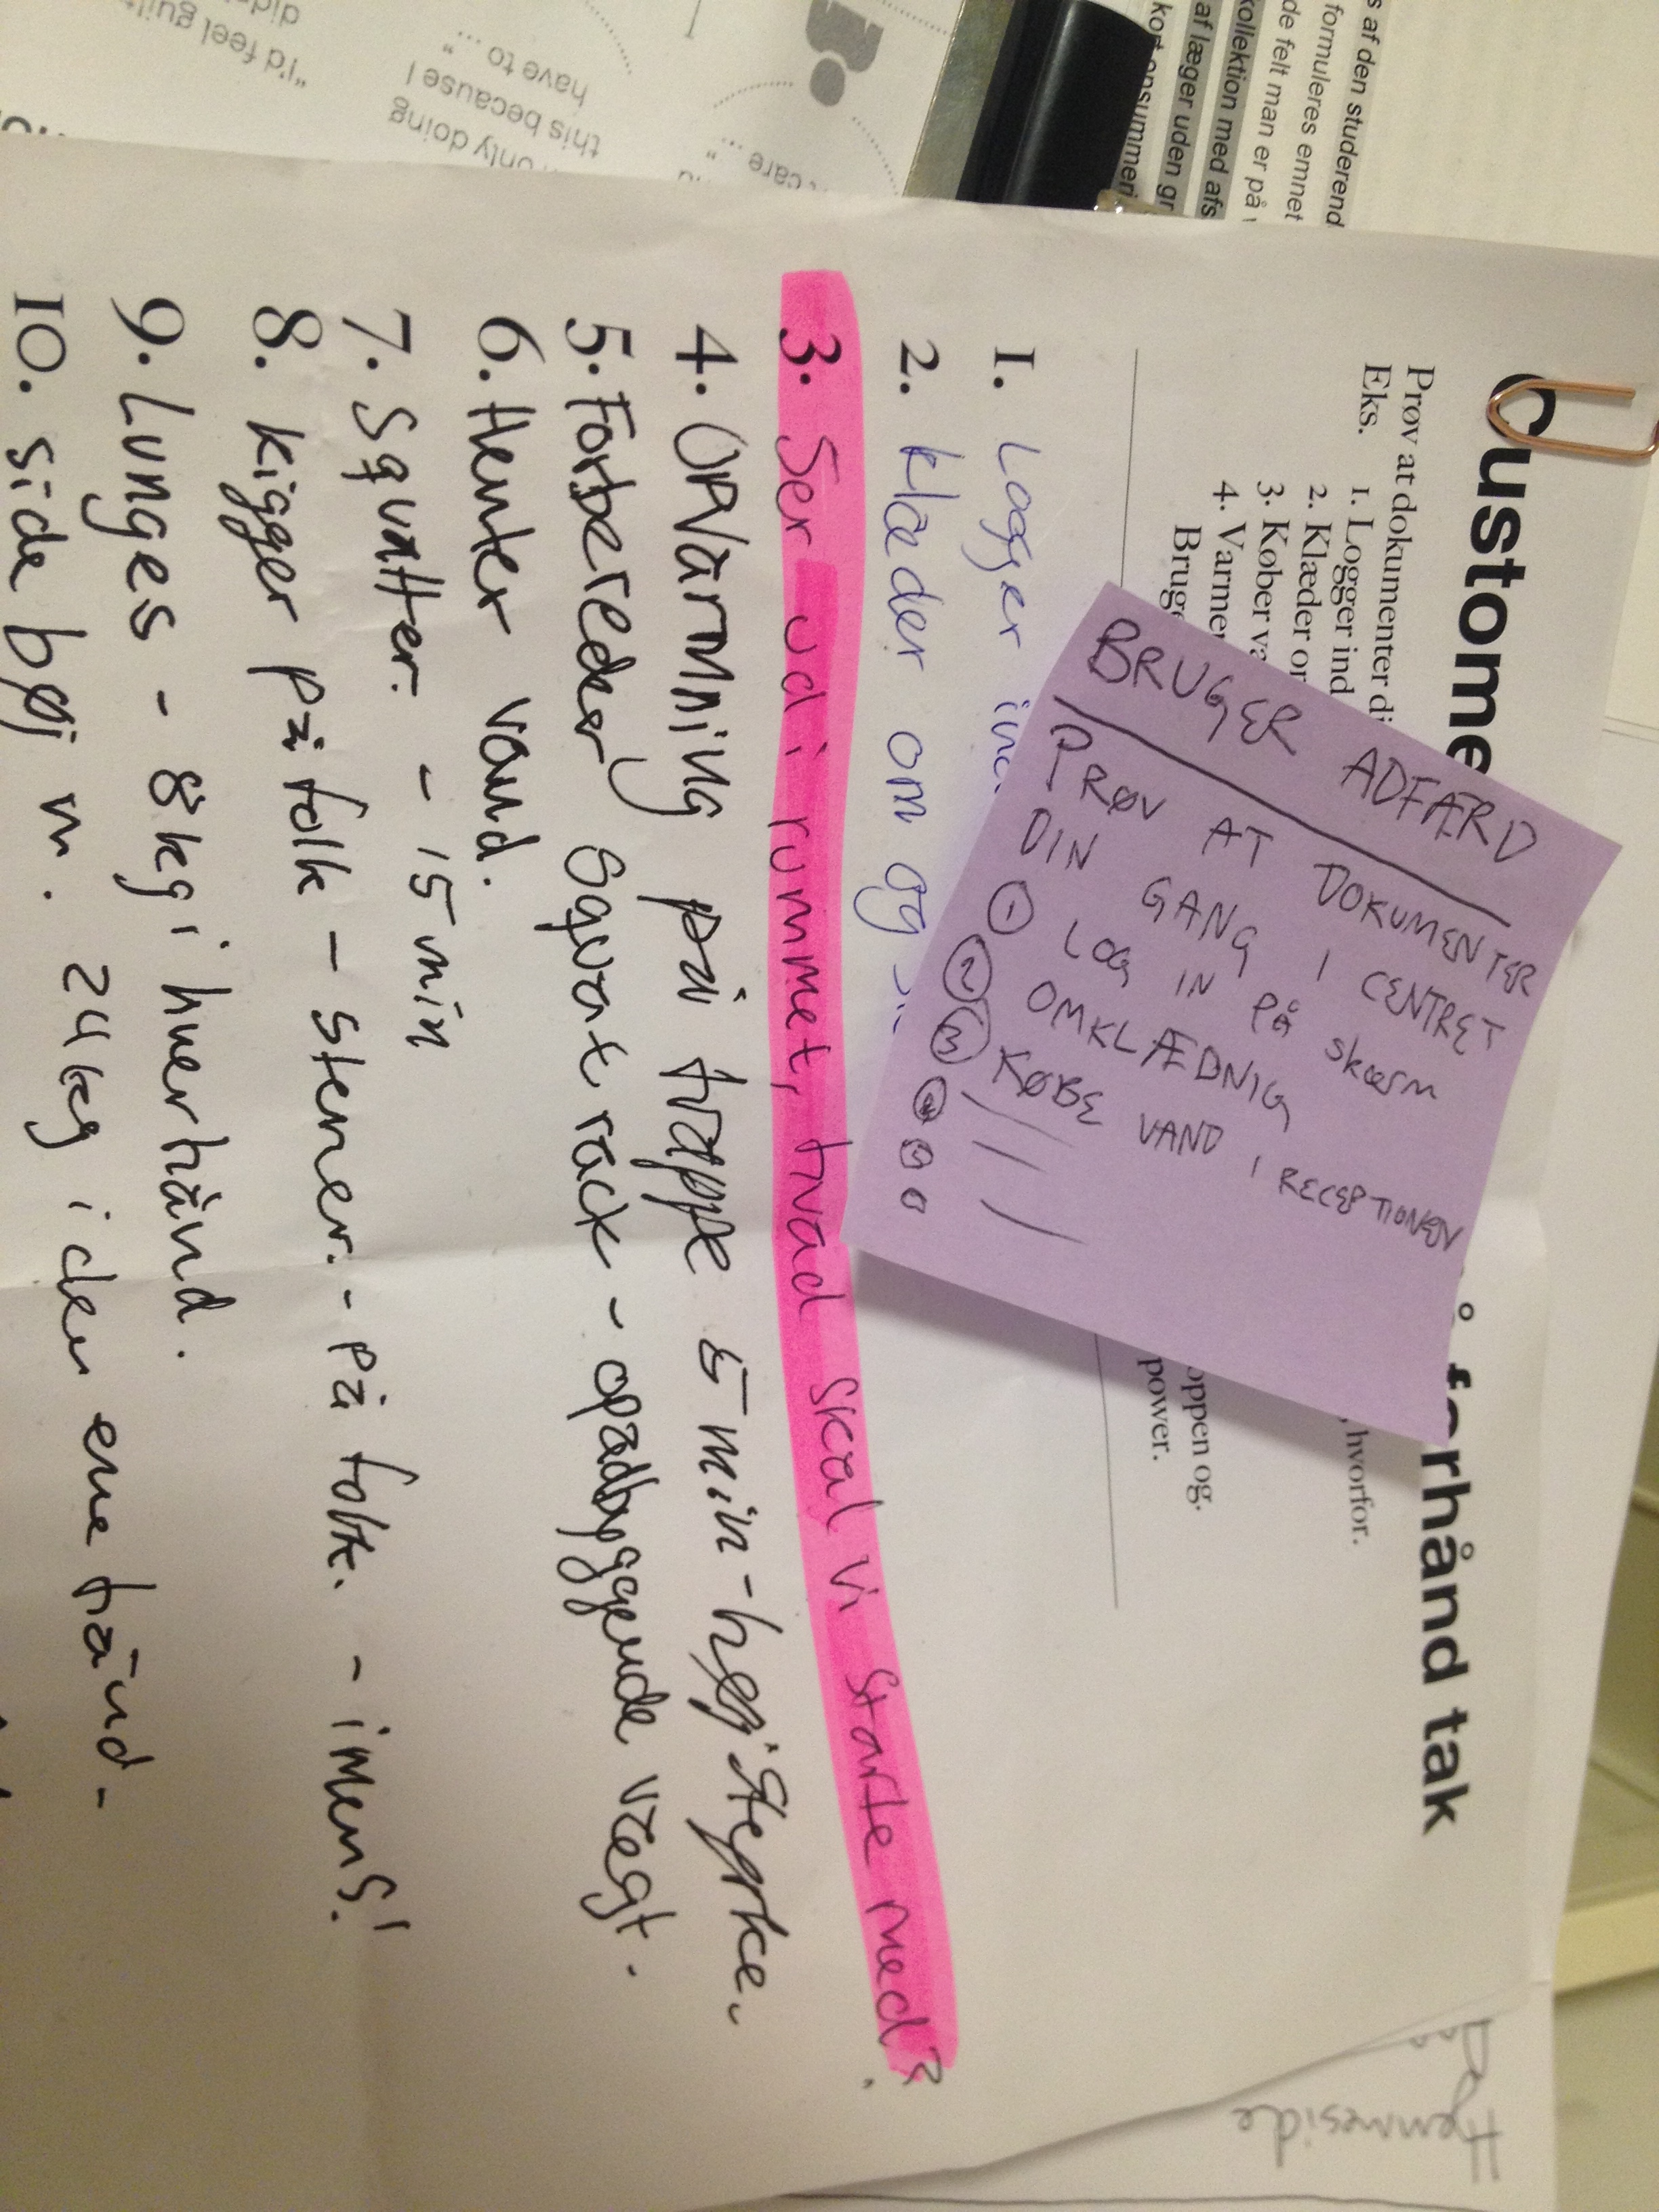 s af den studerend
formuleres emnet
de felt man er på
kollektion med afs
af læger uden gr
"I'd feel guilt
only doing
this because I
have to ..."
care ..."
Custome
å forhånd tak
Prøv at dokumenter di
, hvorfor.
Eks.
1. Logger ind
2. Klæder o
3. Køber va
4. Varmer
oppen og.
Bruge
power.
BRUGER ADFÆRD
PRØV AT DOKUMENTER
DIN GANG I CENTRET
1 LOG IN PÅ SKÆRM
2 OMKLÆDNIG
3 KØBE VAND I RECEPTIONEN
1. Logger ind
2. Klæder om og
3. Ser ud i rummet, hvad skal vi starte med?
4. Opvarmning på trappe 5 min - høj styrke.
5. Forbereder squat rack - opadbyggende vægt.
6. Henter vand.
7. Squatter. - 15 min
8. kigger på folk - stener. - på folk. - imens!
9. Lunges - 8kg i hver hånd.
10. side bøj m. 24kg i den ene hånd -
Hjemmeside